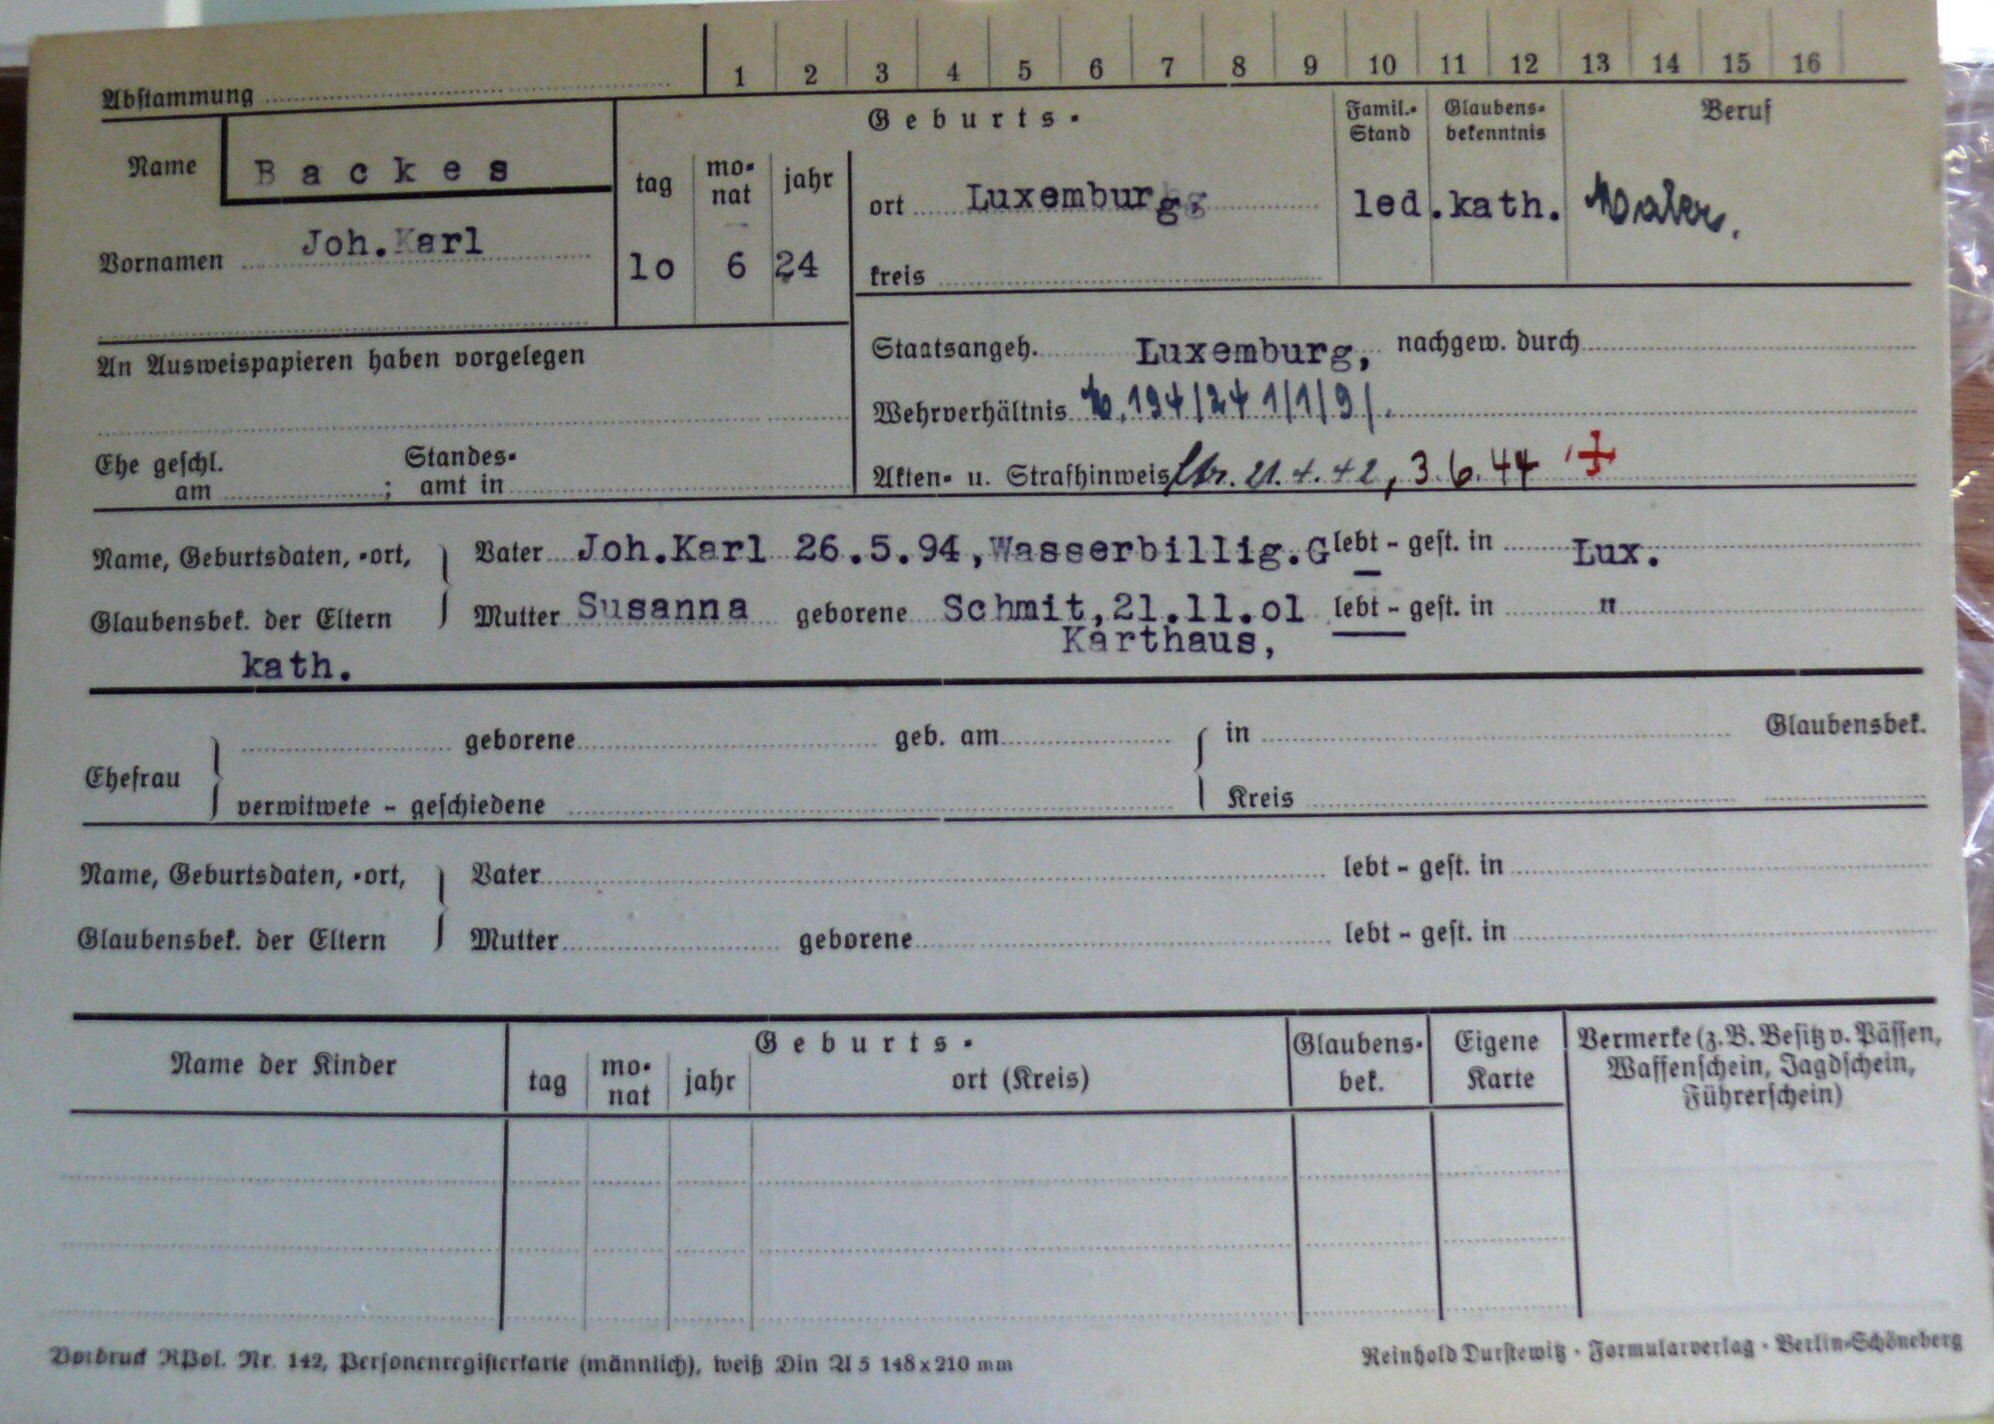 1 2 3 4 5 6 7 8 9 10 11 12 13 14 15 16
Abstammung
Name Backes
Vornamen Joh.Karl
Geburts-
tag mo-nat jahr
lo 6 24
ort Luxemburg
kreis
Famil.-Stand
led.
Glaubens-bekenntnis
kath.
Beruf
Maler.
An Ausweispapieren haben vorgelegen
Staatsangeh. Luxemburg, nachgew. durch
Wehrverhältnis 194/24 1/1/9/.
Ehe geschl. am ; Standes-amt in
Akten- u. Strafhinweis 21.4.42, 3.6.44
Name, Geburtsdaten, -ort, Vater Joh.Karl 26.5.94,Wasserbillig.G lebt - gest. in Lux.
Glaubensbek. der Eltern Mutter Susanna geborene Schmit,21.11.o1 lebt - gest. in "
Karthaus,
kath.
Ehefrau geborene geb. am in Glaubensbek.
verwitwete - geschiedene Kreis
Name, Geburtsdaten, -ort, Vater lebt - gest. in
Glaubensbek. der Eltern Mutter geborene lebt - gest. in
Name der Kinder
Geburts-
tag mo-nat jahr ort (Kreis)
Glaubens-bek.
Eigene Karte
Vermerke (z.B. Besitz v. Pässen,
Waffenschein, Jagdschein,
Führerschein)
Vordruck RPol. Nr. 142, Personenregisterkarte (männlich), weiß Din A 5 148x210 mm
Reinhold Durstewitz · Formularverlag · Berlin-Schöneberg